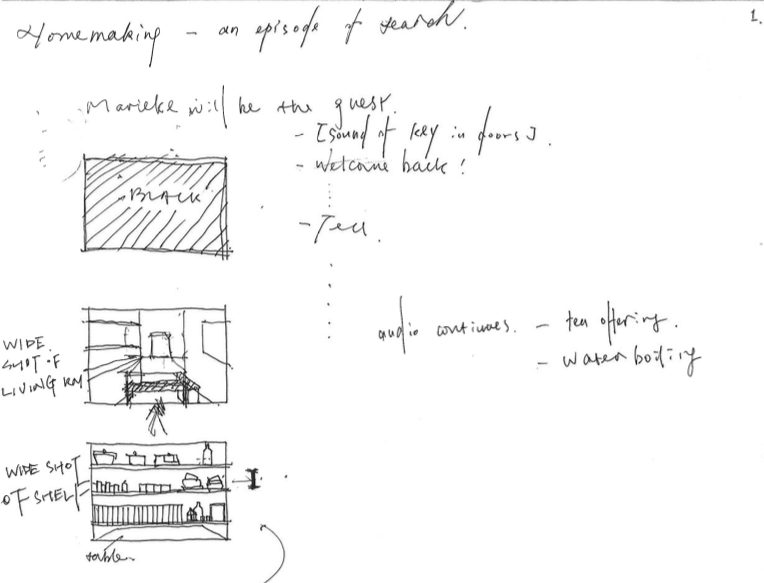 1.
Homemaking – an episode of search.
Marieke will be the guest.
- [sound of key in doors].
- Welcome back!
BLACK
- Tea.
WIDE
SHOT OF
LIVING RM
audio continues. - tea offering.
- water boiling
WIDE SHOT
OF SHELF
table.